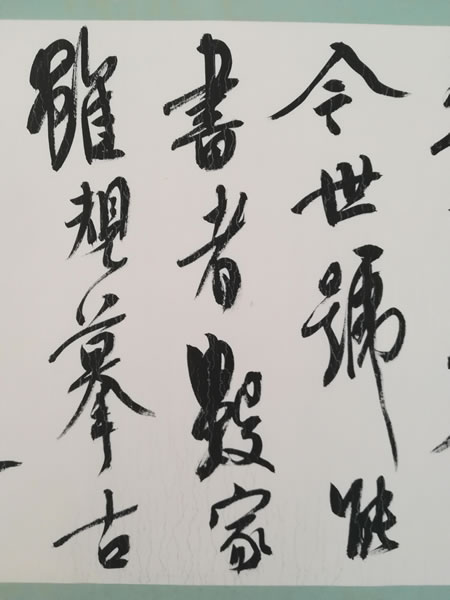 今世號能
書者數家
雖規摹古